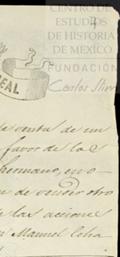 CENTRO DE
ESTUDIOS
DE HISTORIA
DE MÉXICO
FUNDACIÓN
Carlos Slim
REAL
venta de un
favor de la
hermano, en o
de vender otro
las acciones
Manuel